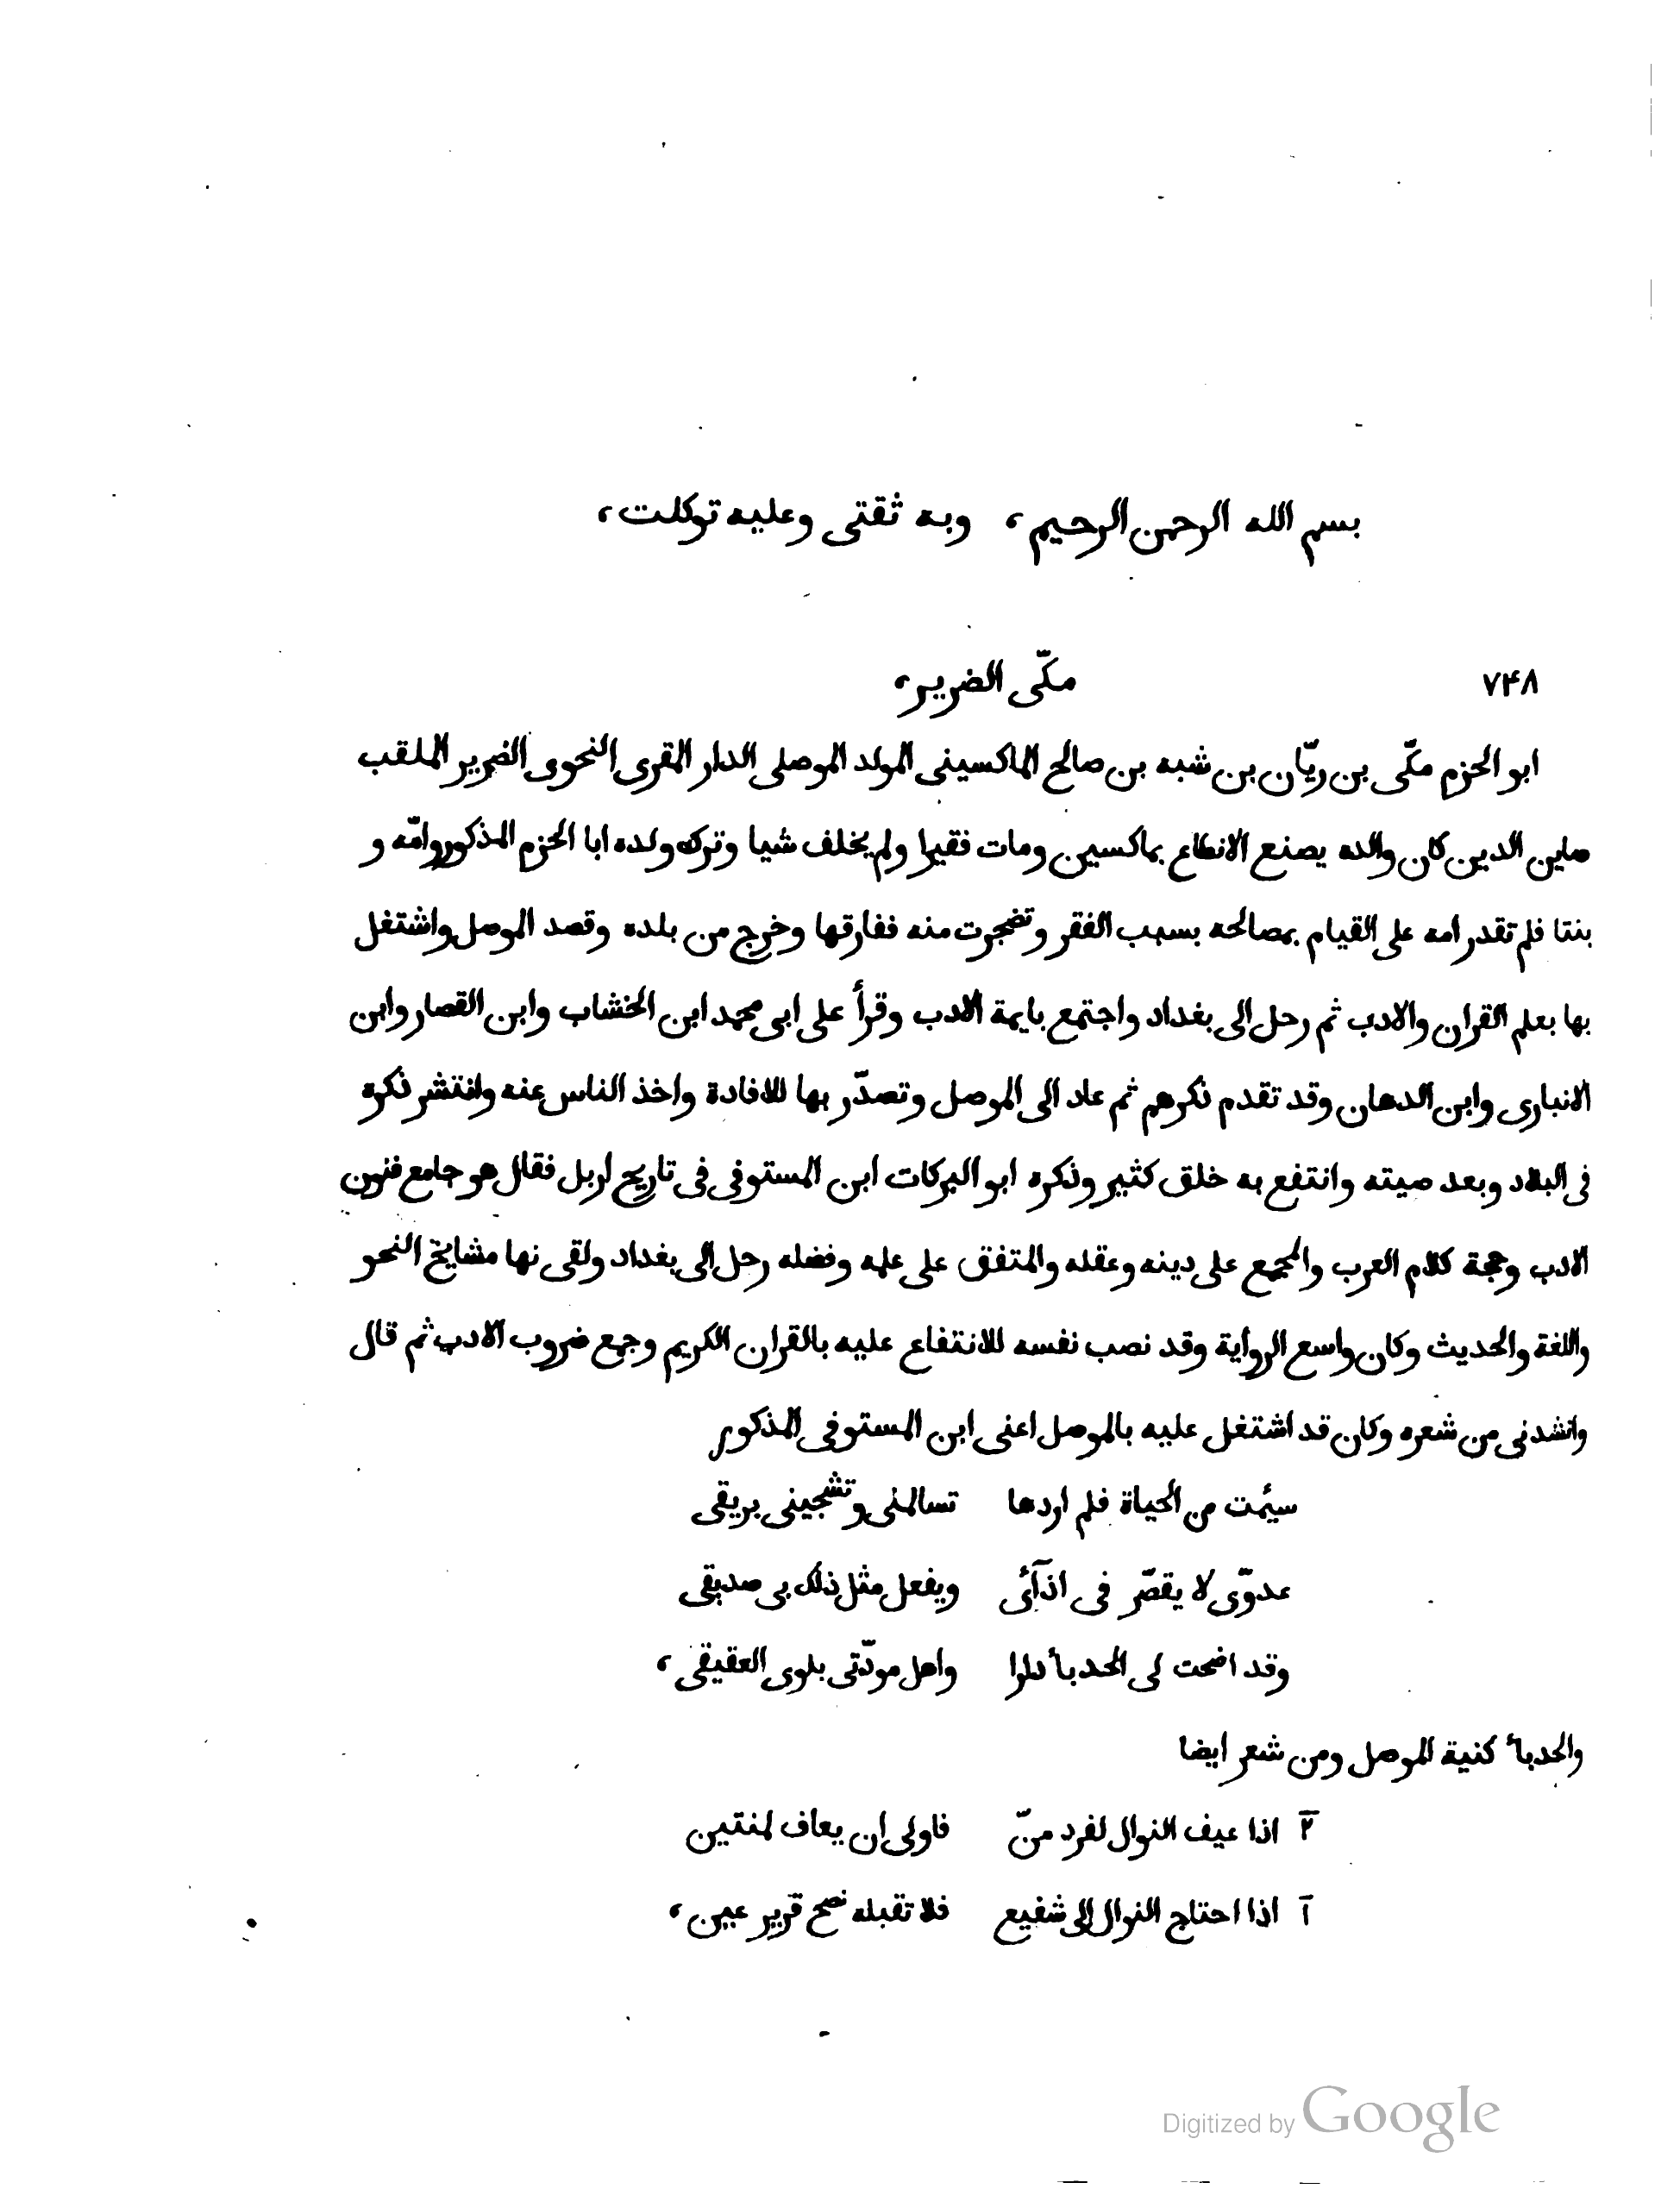 بسم الله الرحمن الرحيم، وبه ثقتى وعليه توكلت،
٧۴٨ مكّى الضرير،
ابو الحزم مكّى بن ريّان بن شبه بن صالح الماكسينى المولد الموصلى الدار المقرى النحوى الضرير الملقب
صاين الدين كان والده يصنع الانطاع بماكسين ومات فقيرا ولم يخلف شيا وترك ولده ابا الحزم المذكور وامّه و
بنتا فلم تقدر امه على القيام بمصالحه بسبب الفقر وتضجرت منه ففارقها وخرج من بلده وقصد الموصل واشتغل
بها بعلم القران والادب ثم رحل الى بغداد واجتمع بايمة الادب وقرأ على ابى محمد ابن الخشاب وابن القصار وابن
الانبارى وابن الدهان وقد تقدم ذكرهم ثم عاد الى الموصل وتصدّر بها للافادة واخذ الناس عنه وانتشر ذكره
فى البلاد وبعد صيته وانتفع به خلق كثير وذكره ابو البركات ابن المستوفى فى تاريخ اربل فقال هو جامع فنون
الادب وحجة كلام العرب والمجمع على دينه وعقله والمتفق على علمه وفضله رحل الى بغداد ولقى نها مشايخ النحو
واللغة والحديث وكان واسع الرواية وقد نصب نفسه للانتفاع عليه بالقران الكريم وجمع ضروب الادب ثم قال
وانشدنى من شعره وكان قد اشتغل عليه بالموصل اعنى ابن المستوفى المذكور
سئمت من الحياة فلم اردها تسالمنى وتشجينى بريقى
عدوّى لا يقصّر فى اذآئى ويفعل مثل ذلك بى صديقى
وقد اضحت لى الحدبأ دارا واهل مودّتى بلوى العقيقى،
والحدبأ كنية الموصل ومن شعر ايضا
٢ اذا عيف النوال لفرد منّ فاولى ان يعاف لمنتين
ا اذا احتاج النوال الى شفيع فلا تقبله نصح قرير عين،
Digitized by Google